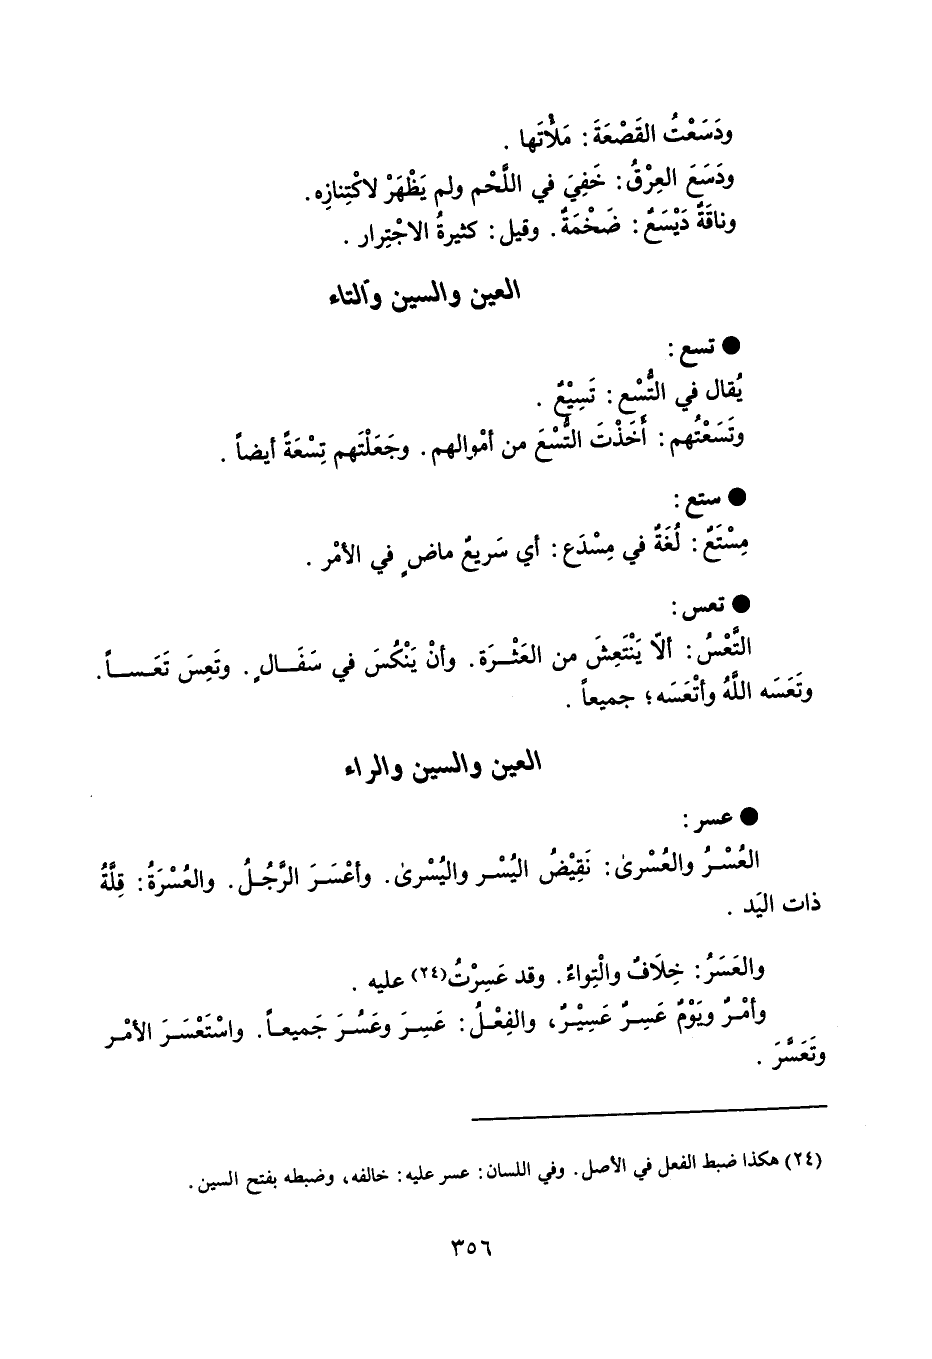 ودَسَعْتُ القَصْعَةَ: مَلْأَتَها .
ودَسَعَ العِرْقُ: خَفِيَ في اللَّحْم ولم يَظْهَرْ لاكْتِنازِه.
وناقَةٌ دَيْسَعٌ: ضَخْمَةٌ. وقيل: كثيرةُ الاجْتِرار .
العين والسين والتاء
● تسع:
يُقال في التُّسْع: تَسِيْعٌ .
وتَسَعْتُهم: أَخَذْتَ التُّسْعَ من أمْوالهم. وجَعَلْتَهم تِسْعَةً أيضاً .
● ستع:
مِسْتَعٌ: لُغَةٌ في مِسْدَع: أي سَريعٌ ماضٍ في الأمْر .
● تعس:
التَّعْسُ: ألّا يَنْتَعِشَ من العَثْـرَة. وأنْ يَنْكُسَ في سَفَـالٍ. وتَعِسَ تَعَسـاً.
وتَعَسَه اللَّهُ وأتْعَسَه؛ جميعاً .
العين والسين والراء
● عسر:
العُسْـرُ والعُسْرىٰ: نَقِيْضُ اليُسْـر واليُسْرىٰ. وأعْسَـرَ الرَّجُـلُ. والعُسْرَةُ: قِلَّةُ
ذات اليَد .
والعَسَرُ: خِلَافٌ والْتِواءٌ. وقد عَسِرْتُ(٢٤) عليه .
وأمْـرٌ ويَوْمٌ عَسِـرٌ عَسِيْـرٌ، والفِعْـلُ: عَسِرَ وعَسُـرَ جَميعـاً. واسْتَعْسَـرَ الأمْـر
وتَعَسَّرَ .
(٢٤) هكذا ضبط الفعل في الأصل. وفي اللسان: عسر عليه: خالفه، وضبطه بفتح السين.
٣٥٦